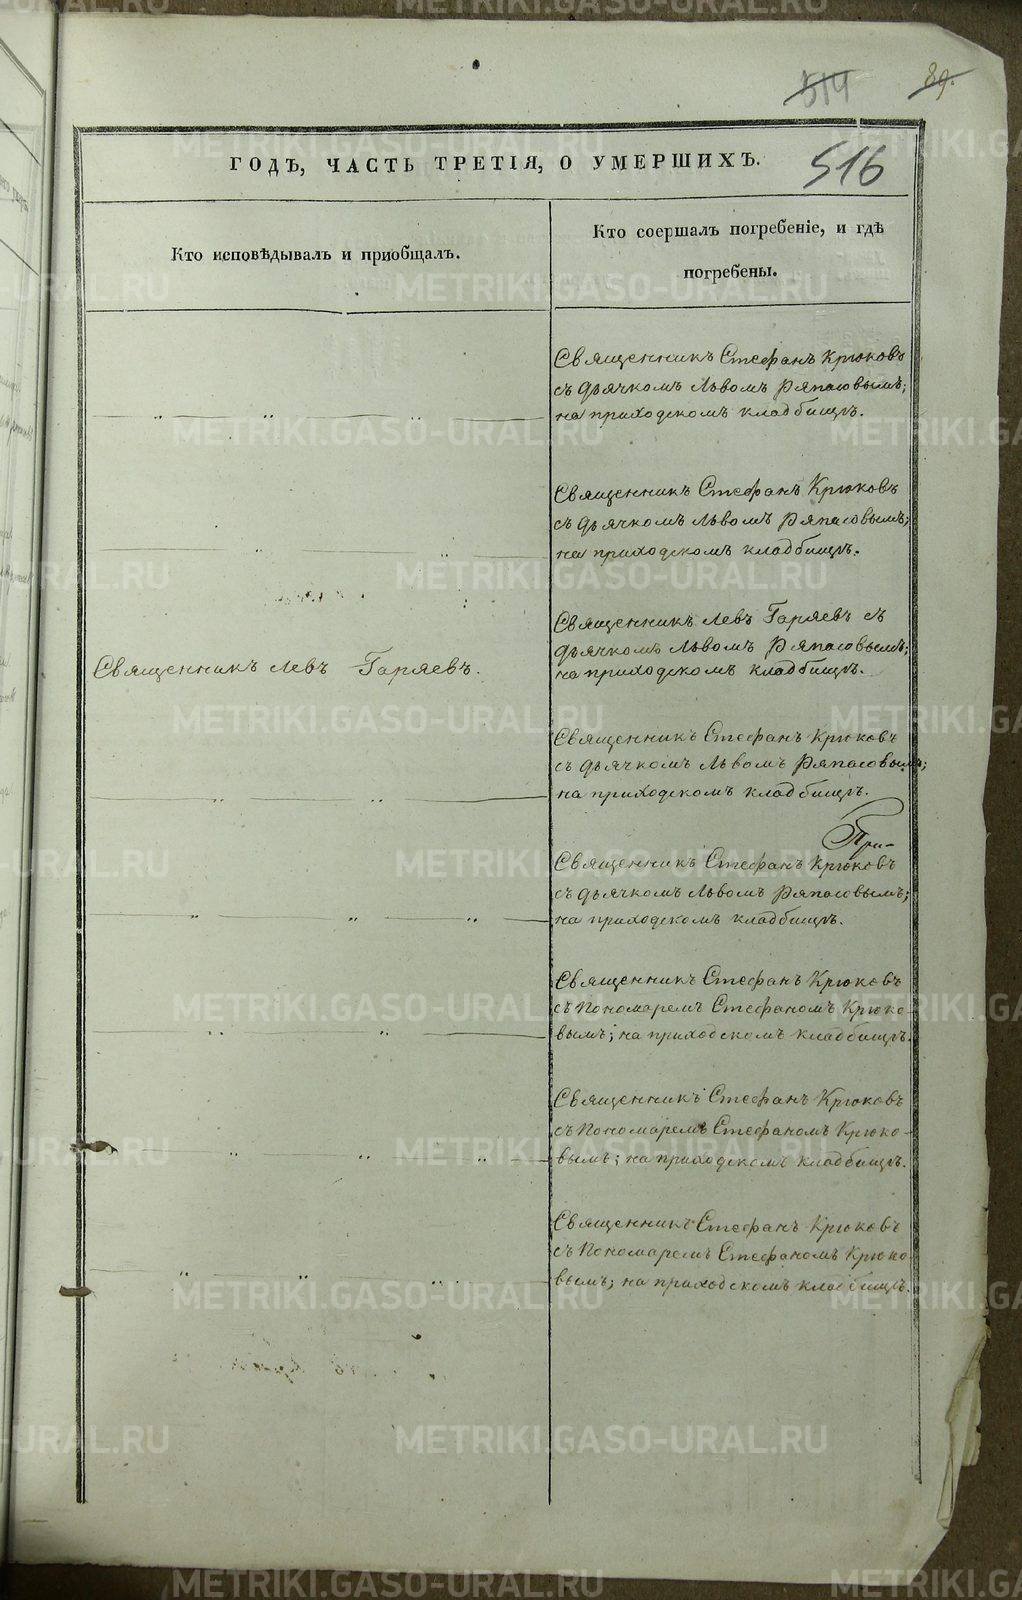 514
89.
516
ГОДЪ, ЧАСТЬ ТРЕТІЯ, О УМЕРШИХЪ.
Кто исповѣдывалъ и пріобщалъ.
Кто соершалъ погребеніе, и гдѣ
погребены.
Священникъ Стефанъ Крюковъ
съ дьячкомъ Львомъ Ряпасовымъ;
на приходскомъ кладбищѣ.
Священникъ Стефанъ Крюковъ
съ дьячкомъ Львомъ Ряпасовымъ;
на приходскомъ кладбищѣ.
Священникъ Левъ Гаряевъ.
Священникъ Левъ Гаряевъ съ
дьячкомъ Львомъ Ряпасовымъ;
на приходскомъ кладбищѣ.
Священникъ Стефанъ Крюковъ
съ дьячкомъ Львомъ Ряпасовымъ;
на приходскомъ кладбищѣ.
При-
Священникъ Стефанъ Крюковъ
съ дьячкомъ Львомъ Ряпасовымъ;
на приходскомъ кладбищѣ.
Священникъ Стефанъ Крюковъ
съ Пономаремъ Стефаномъ Крюко-
вымъ; на приходскомъ кладбищѣ.
Священникъ Стефанъ Крюковъ
съ Пономаремъ Стефаномъ Крюко-
вымъ; на приходскомъ кладбищѣ.
Священникъ Стефанъ Крюковъ
съ Пономаремъ Стефаномъ Крюко-
вымъ; на приходскомъ кладбищѣ.
METRIKI.GASO-URAL.RU